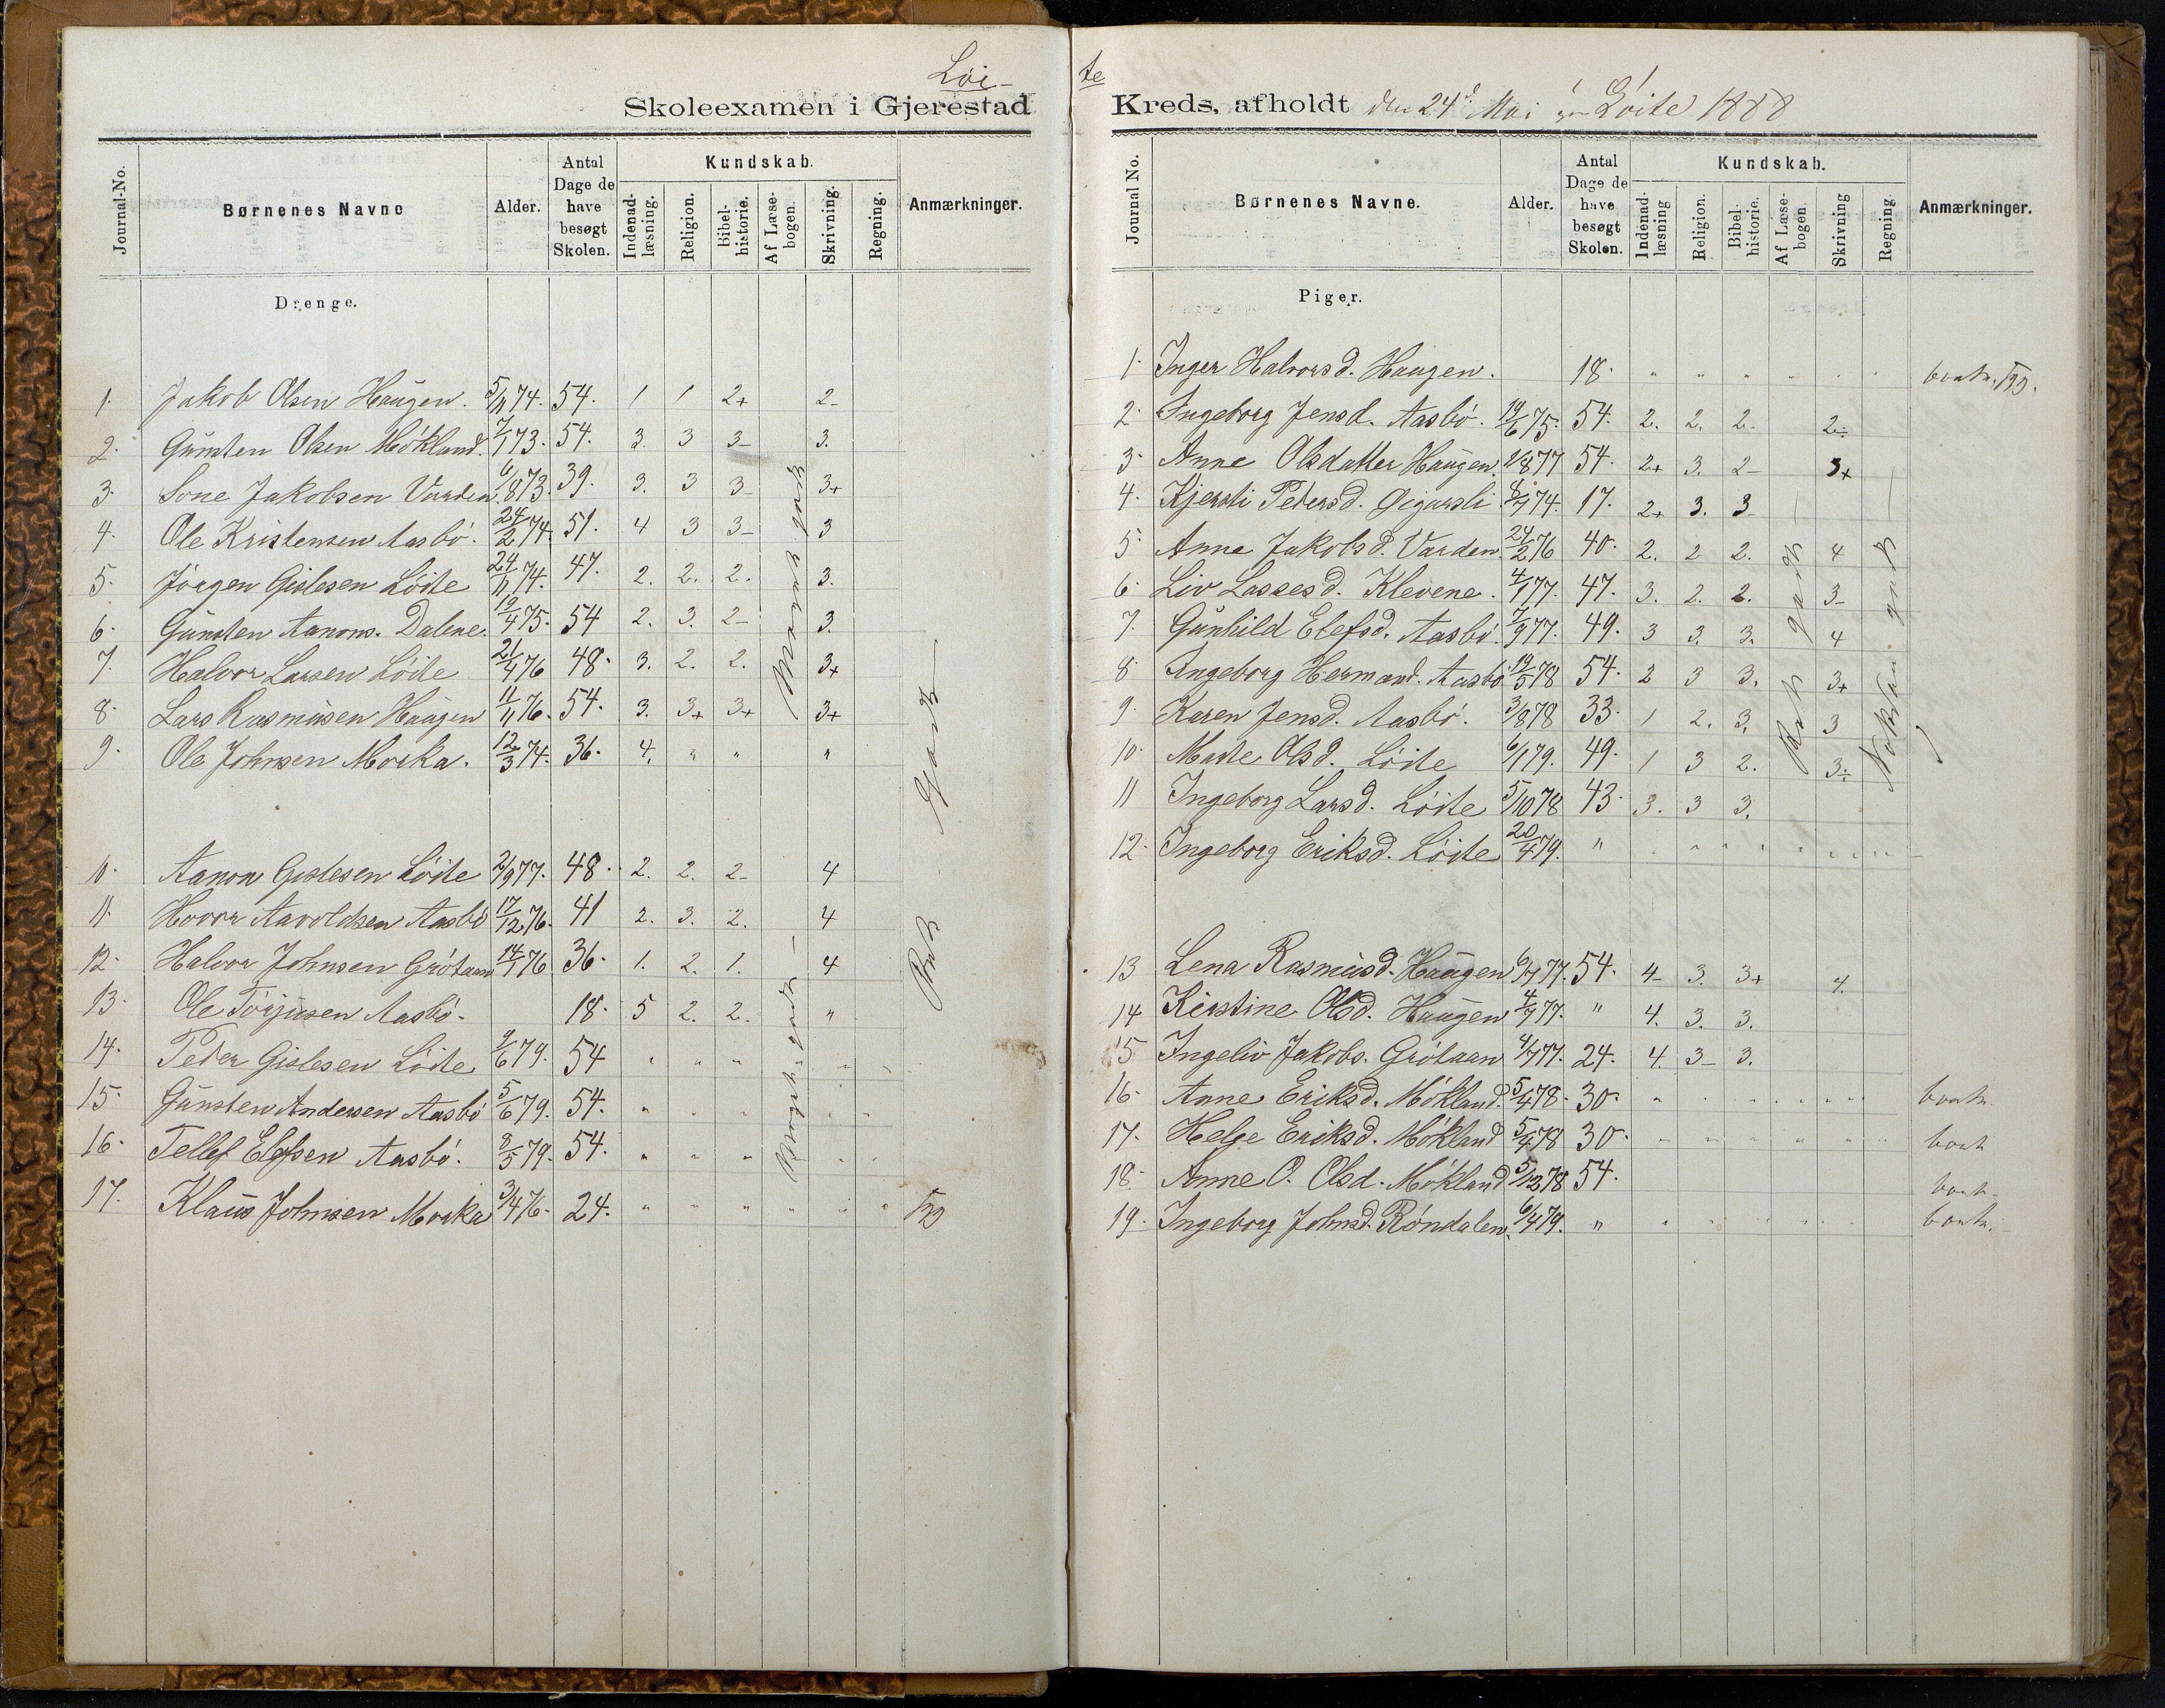 Løi-
Skoleexamen i Gjerestad
Journal-No. Børnenes Navne Alder. Antal Dage de have besøgt Skolen. Kundskab. Indenad-læsning. Religion. Bibel-historie. Af Læse-bogen. Skrivning. Regning. Anmærkninger.
Drenge.
1. Jakob Olsen Haugen. 5/11 74. 54. 1 1 2+ 2-
2. Gunsten Olsen Mökland. 7/1 73. 54. 3. 3 3- 3.
3. Sone Jakobsen Varden 6/8 73. 39. 3. 3 3- 3+
4. Ole Kristensen Aasbö. 24/2 74. 51. 4 3 3- 3
5. Jörgen Gislesen Löite 24/11 74. 47. 2. 2. 2. 3.
6. Gunsten Aanons. Dalene. 19/4 75. 54 2. 3. 2- 3.
7. Halvor Larsen Löite 21/4 76 48. 3. 2. 2. 3+
8. Lars Rasmusen Haugen 11/11 76. 54. 3. 3+ 3+ 3+
9. Ole Johnsen Morka. 12/3 74. 36. 4. " " "
10. Aanon Gislesen Löite 2/9 77. 48. 2. 2. 2- 4
11. Hovor Aavoldsen Aasbö 17/12 76. 41 2. 3. 2. 4
12. Halvor Johnsen Grötaan 14/1 76 36. 1. 2. 1. 4
13. Ole Törjusen Aasbö. 18. 5 2. 2. "
14. Peder Gislesen Löite 9/6 79. 54 " " "
15. Gunsten Andersen Aasbö 5/6 79. 54. " " "
16. Tellef Elefsen Aasbö. 8/5 79. 54. " " "
17. Klaus Johnsen Morka 3/4 76. 24. " " " " " "
Meget godt
Godt
te
Kreds, afholdt den 24d Mai paa Löite 1888
Journal No. Børnenes Navne. Alder. Antal Dage de have besøgt Skolen. Kundskab. Indenad-læsning Religion. Bibel-historie. Af Læse-bogen. Skrivning Regning. Anmærkninger.
Piger.
1. Inger Halvorsd. Haugen. 18. " " " " " " bortr.
2. Ingeborg Jensd. Aasbö. 19/6 75. 54. 2. 2. 2. 2÷
3. Anne Olsdatter Haugen. 2/8 77 54. 2+ 3. 2- 3+
4. Kjersti Pedersd. 8/7 74. 17. 2+ 3. 3
5. Anne Jakobsd. Varden 24/2 76 40. 2. 2 2. 4
6. Liv Lassesd. Klevene. 4/1 77. 47. 3. 2. 2. 3-
7. Gunhild Elefsd. Aasbö. 7/9 77. 49. 3 3. 3. 4
8. Ingeborg Hermand. Aasbö 19/5 78 54. 2 3 3. 3+
9. Karen Jensd. Aasbö. 3/8 78 33. 1 2. 3. 3
10. Marte Olsd. Löite 6/1 79. 49. 1 3 2. 3÷
11 Ingeborg Larsd. Löite 5/10 78 43. 3. 3 3.
12. Ingeborg Eriksd. Löite 20/4 79. " " " " " " "
13 Lena Rasmusd. Haugen 6/7 77. 54. 4- 3. 3+ 4.
14 Kirstine Olsd. Haugen 4/7 77. " 4. 3. 3.
15 Ingeliv Jakobs. Grötaan 4/7 77. 24. 4. 3- 3.
16. Anne Eriksd. Mökland. 5/4 78. 30. " " " " " " bortr.
17. Helge Eriksd. Mökland 5/4 78 30. " " " " " " bort
18. Anne O. Olsd. Mökland 5/12 78 54. bort.
19. Ingeborg Johnsd. Röndalen. 6/4 79. " " " " " " " bortr.
Ret godt
Nokså godt